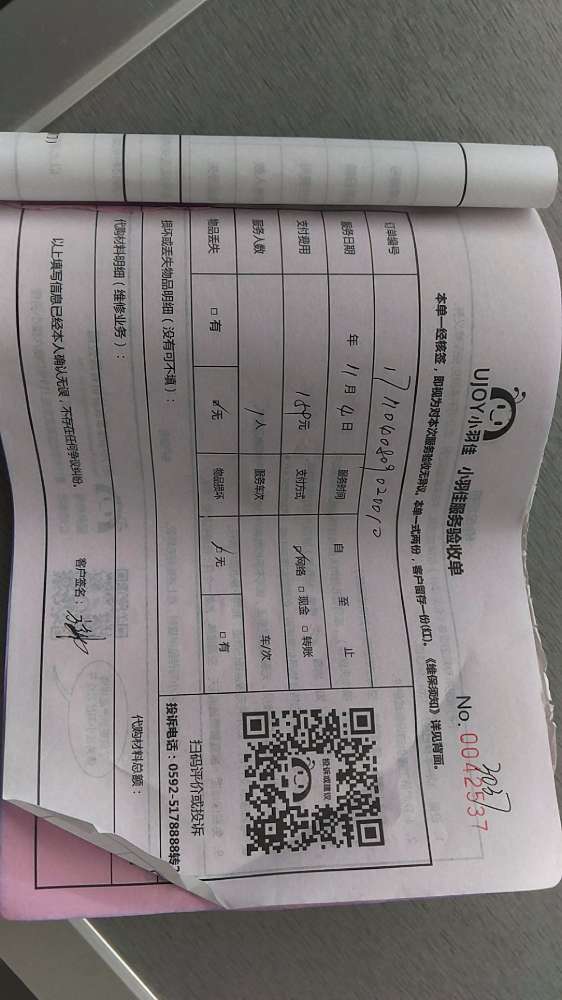 UJOY小羽佳 小羽佳服务验收单
No. 0042537
本单一经核签，即视为对本次服务验收无异议。本单一式两份，客户留存一份(红)。《维保须知》详见背面。
订单编号
服务日期 年 11 月 4 日 服务时间 自 至 止
支付费用 189元 支付方式 网络 □ 现金 □ 转账
服务人数 1人 服务车次 车/次
物品丢失 □ 有 无 物品损坏 无 □ 有
损坏或丢失物品明细（没有可不填）：
投诉或建议
扫码评价或投诉
投诉电话：0592-5178888转2
代购材料明细（维修业务）：
代购材料总额：
以上填写信息已经本人确认无误，不存在任何争议纠纷。
客户签名：